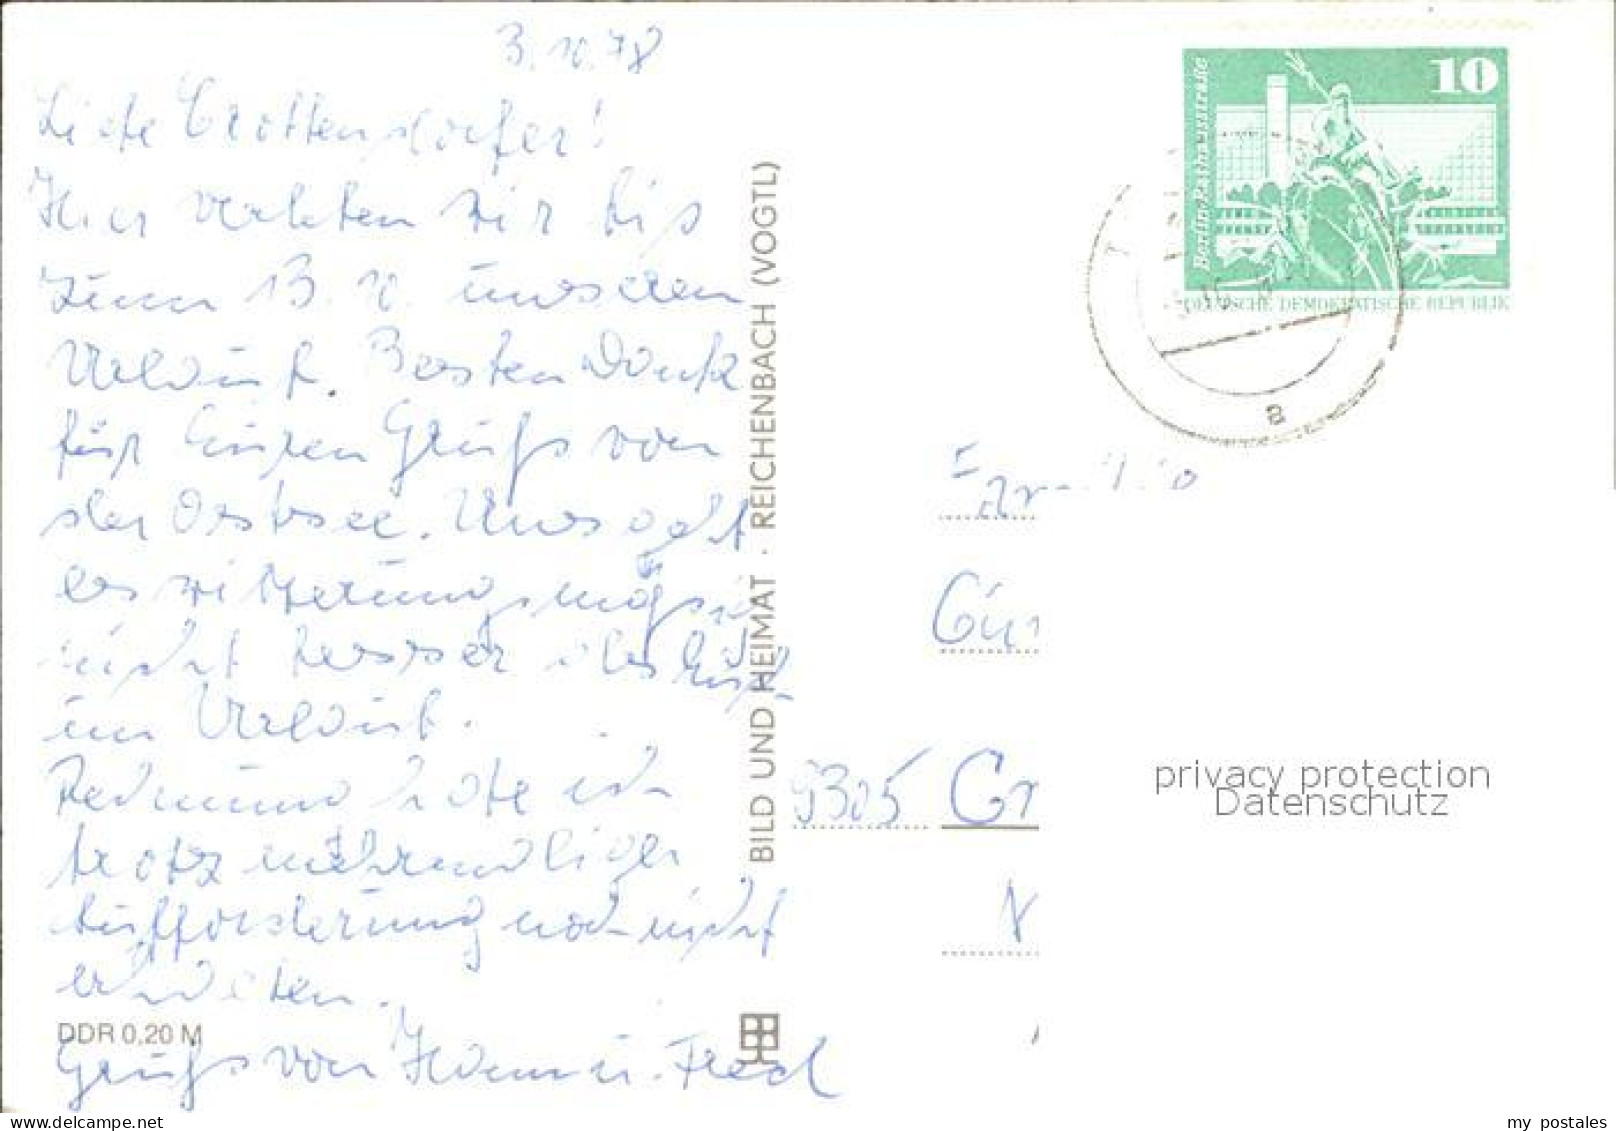 3.10.78
Liebe Crottendorfer!
Hier verleben wir bis
zum 13.10. unseren
Urlaub. Besten Dank
für Euren Gruß von
der Ostsee. Uns geht
es witterungsmäßig
nicht besser als Euch
im Urlaub.
Rechnung habe ich
trotz mehrmaliger
Aufforderung noch nicht
erhalten.
Gruß von Hanni u. Fred
DDR 0,20 M
BILD UND HEIMAT · REICHENBACH (VOGTL)
10
Berlin, Rathausstraße
DEUTSCHE DEMOKRATISCHE REPUBLIK
a
Familie
Gün
9305 Cr
privacy protection
Datenschutz
www.delcampe.net
my postales